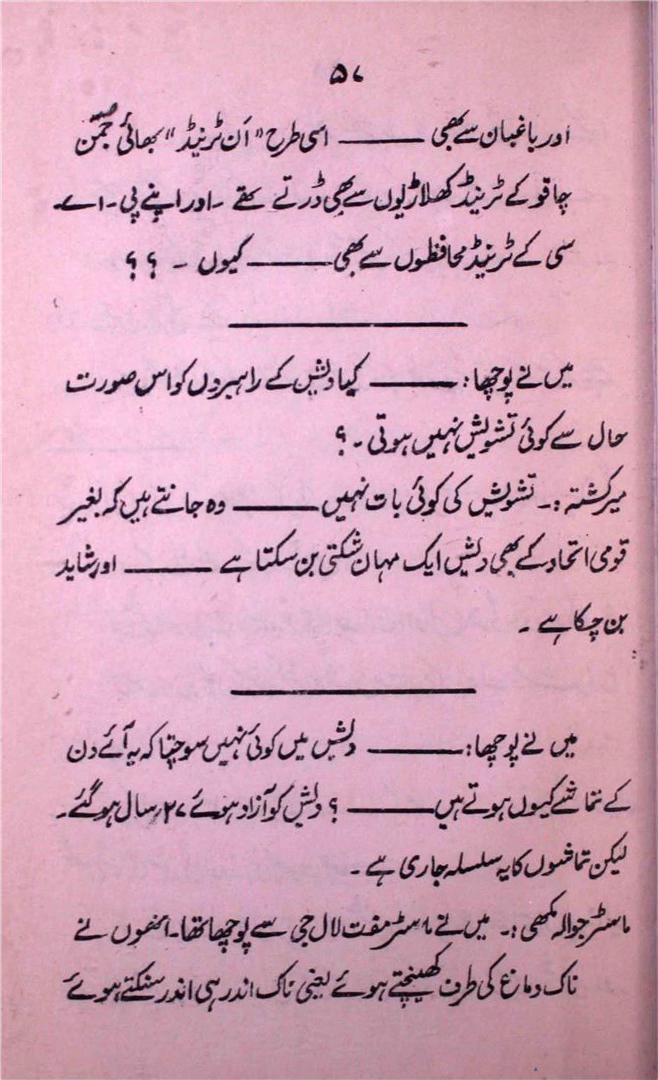 ۵۷
اور باغبان سے بھی ——— اسی طرح "اَن ٹرینیڈ" بھائی جمّن
چاقو کے ٹرینیڈ کھلاڑیوں سے بھی ڈرتے تھے ۔ اور اپنے پی ۔ اے ۔
سی کے ٹرینیڈ محافظوں سے بھی ——— کیوں ۔ ؟ ؟
میں نے پوچھا: ——— کیا دیش کے راہبروں کو اس صورت
حال سے کوئی تشویش نہیں ہوتی ۔ ؟
میر کشتہ :۔ تشویش کی کوئی بات نہیں ——— وہ جانتے ہیں کہ بغیر
قومی اتحاد کے بھی دیش ایک مہان شکتی بن سکتا ہے ——— اور شاید
بن چکا ہے ۔
میں نے پوچھا: ——— دیش میں کوئی نہیں سوچتا کہ یہ آئے دن
کے تماشے کیوں ہوتے ہیں ——— ؟ دیش کو آزاد ہوئے ۲۷ سال ہو گئے ۔
لیکن تماشوں کا یہ سلسلہ جاری ہے ۔
ماسٹر جوالہ مکھی :۔ میں نے ماسٹر مفت لال جی سے پوچھا تھا ۔ انھوں نے
ناک دماغ کی طرف کھینچتے ہوئے یعنی ناک اندر ہی اندر سنکتے ہوئے